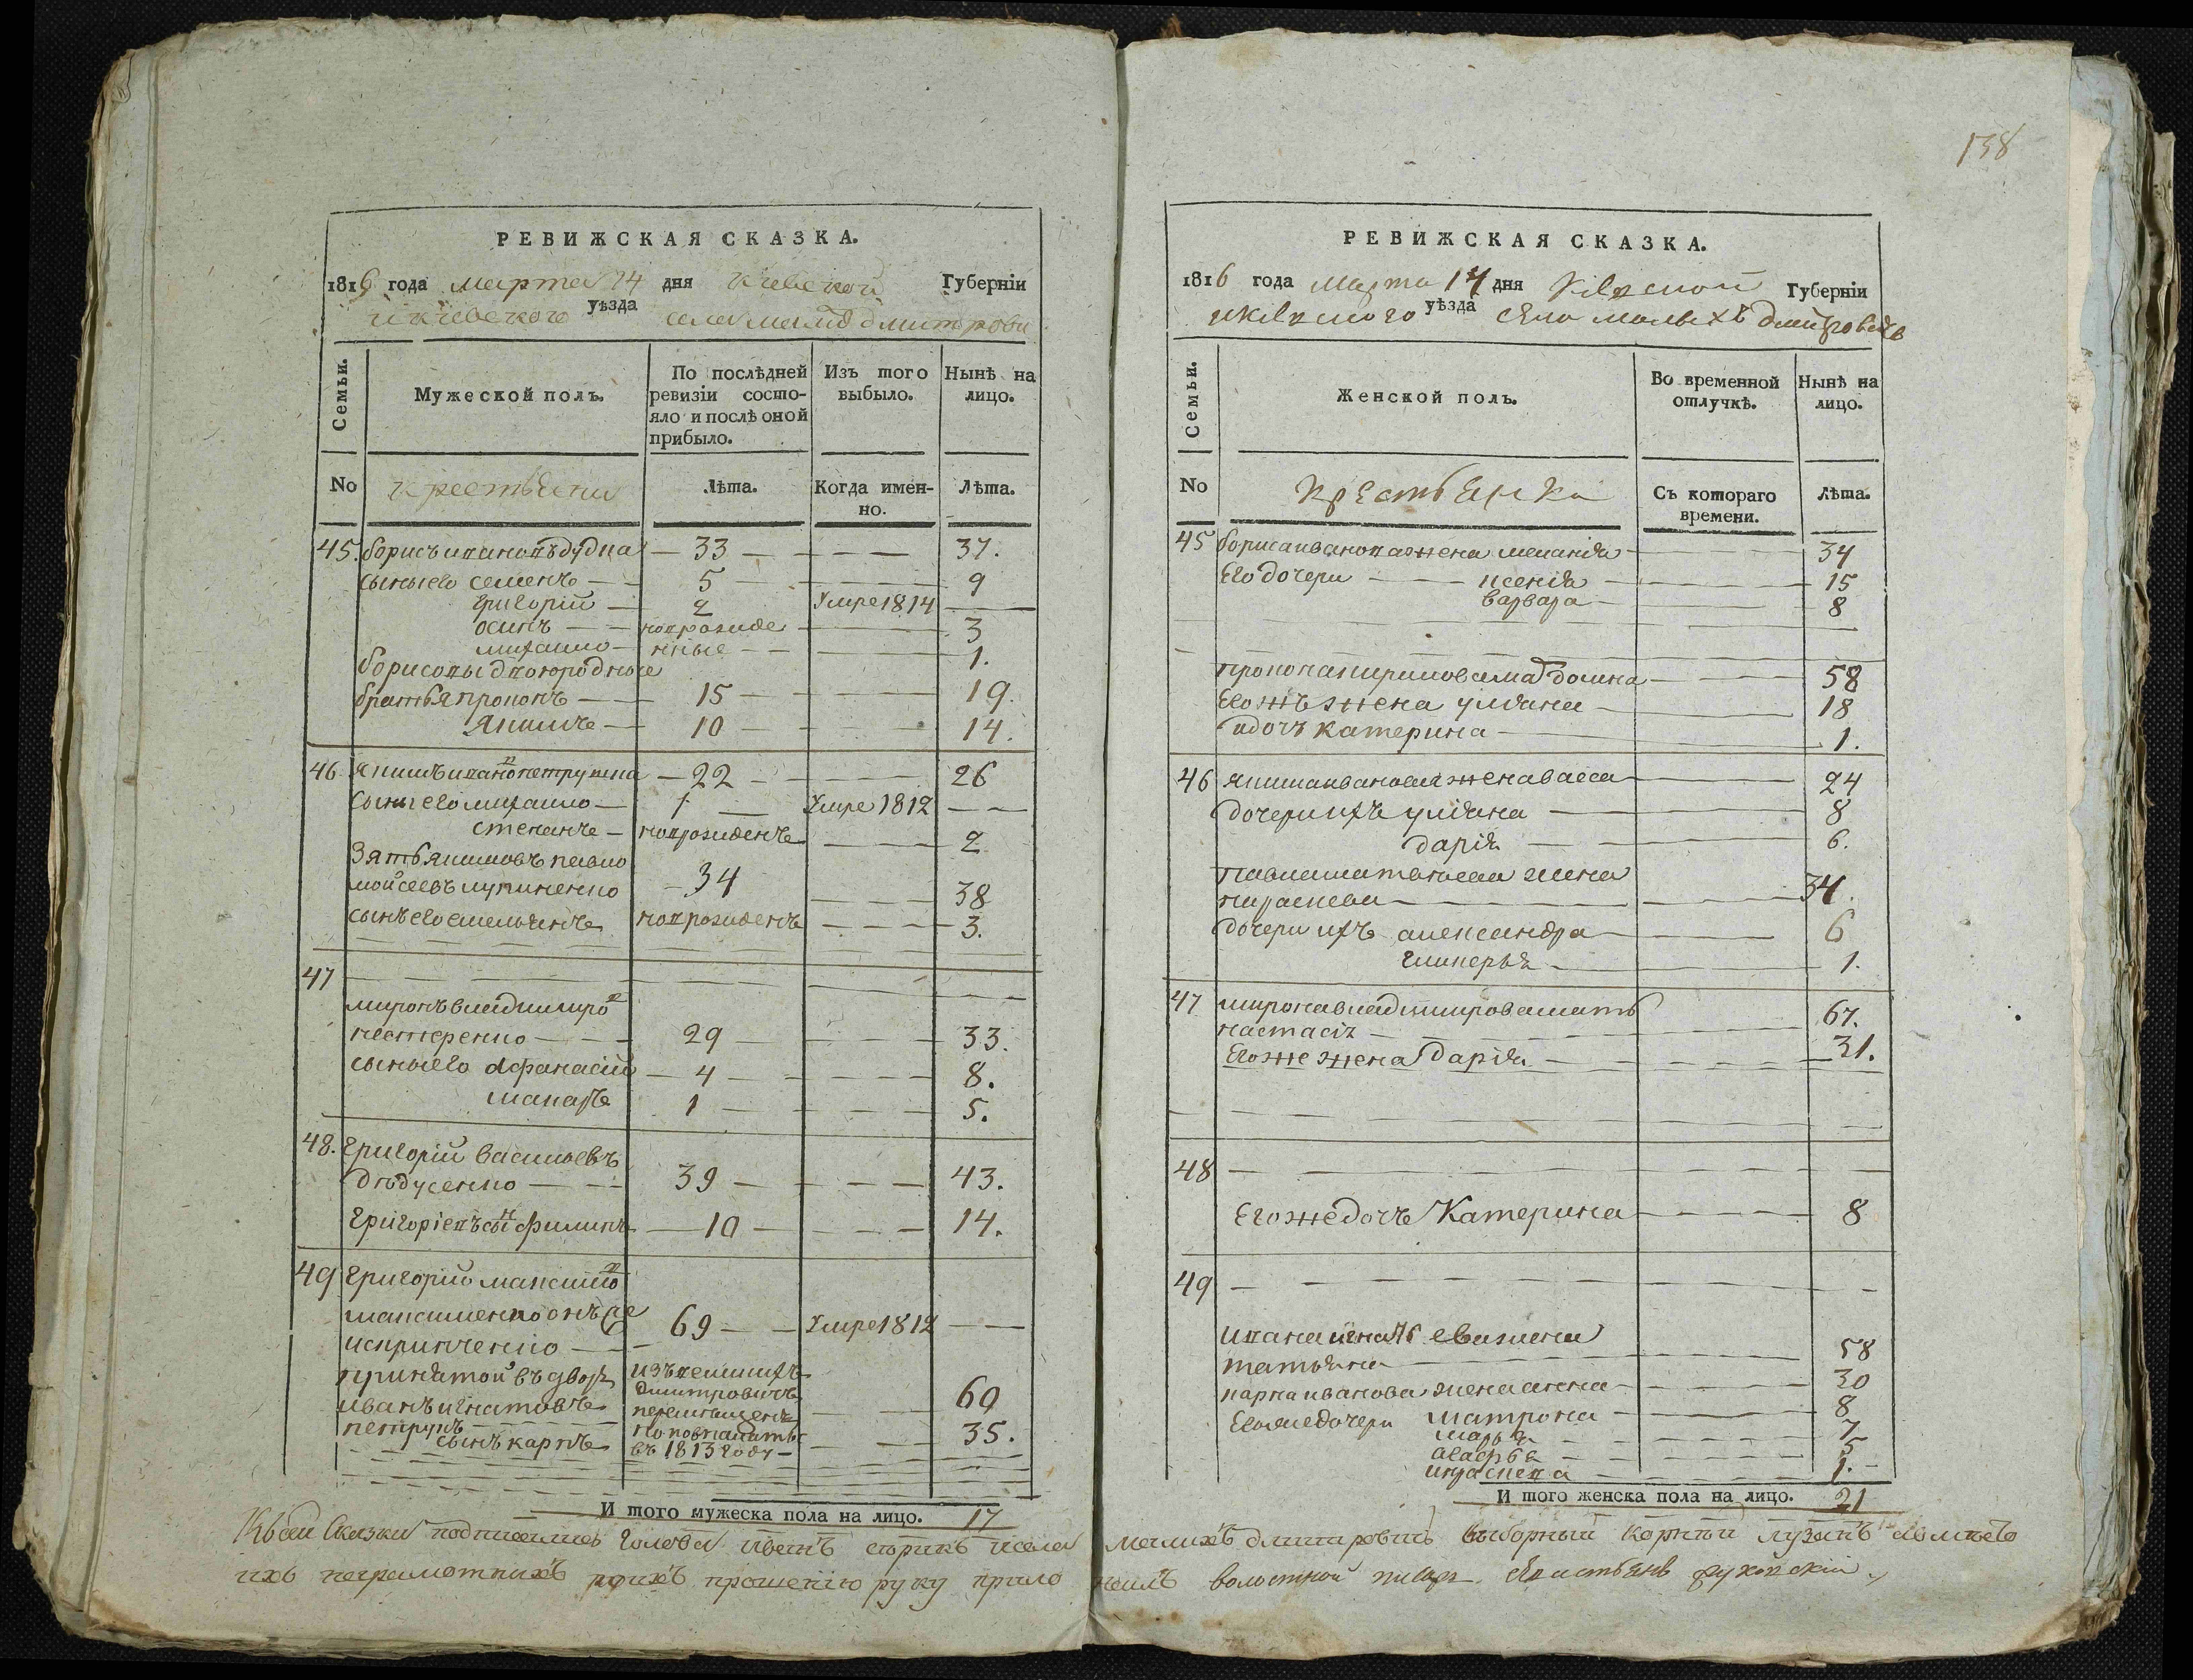 РЕВИЖСКАЯ СКАЗКА.
1816 года марта 14 дня Киевской Губерніи
и киевского уѣзда села малыхъ дмитрови
Семьи.
Мужеской полъ.
По послѣдней ревизіи состо-
яло и послѣ оной
прибыло.
Изъ того
выбыло.
Нынѣ на
лицо.
No крестьяни Лѣта. Когда имен-
но. Лѣта.
45. борисъ ивановъ дудка — 33 — — — 37.
сыны его семенъ — 5 — 9
григорій — 2 умре 1814 —
осипъ — новорожде — 3
михайло — нные — 1.
борисовы двоюродные
братья прокопъ — 15 — 19.
якимъ — 10 — 14.
46. якимъ ивановъ — 22 — 26
сыны его михайло — 1 — умре 1812 — —
степанъ — новорожденъ — 2
зять якимовъ павло
мойсеевъ 34 38
сынъ его емельянъ новорожденъ — 3.
47 — — —
миронъ владимиров
нестеренко — 29 — 33.
сыны его афанасій — 4 — 8.
макаръ 1 — 5.
48. григорій васильевъ
дѣдусенко — 39 — 43.
григоріевъ сын филипъ — 10 — 14.
49 григорій максимов
максименко онъ же
69 — умре 1812 — —
принятой въ дворъ изъ великихъ
дмитровичъ
иванъ игнатовъ перемѣщенъ — 60
петрукъ
сынъ карпъ въ 1813 году — 35.
И того мужеска пола на лицо. 17
138
РЕВИЖСКАЯ СКАЗКА.
1816 года Марта 14 дня Киевской Губерніи
и киевского уѣзда села малыхъ дмитровичъ
Семьи.
Женской полъ.
Во временной
отлучкѣ.
Нынѣ на
лицо.
No крестьянки Съ котораго
времени. Лѣта.
45 бориса иванова жена меланія — 34
Его дочери — ксенія — 15
варвара — 8
прокопа якимова мать домна — 58
Егожъ жена уліана — 18
дочъ катерина — 1.
46 якима иванова жена васса — 24
дочери ихъ уліана — 8
дарія — 6.
павла жена
параскева — 34.
дочери ихъ александра — 6
гликерья — 1.
47 мирона владимирова мать
настасія — 67.
Егоже жена дарія — 31.
48 — — —
Егоже дочъ Катерина — 8
49 — — —
ивана игнатьева жена
татьяна — 58
карпа иванова жена анна — 30
Егоже дочери матрона — 8
марья — 7
агафья — 5
1.
И того женска пола на лицо. 21
Къ сей сказки подписались голова иванъ сѣрикъ и села малихъ дмитровичъ выборный корнѣй лузанъ
ихъ неграмотнихъ прошенію руку приложилъ волостной писаръ